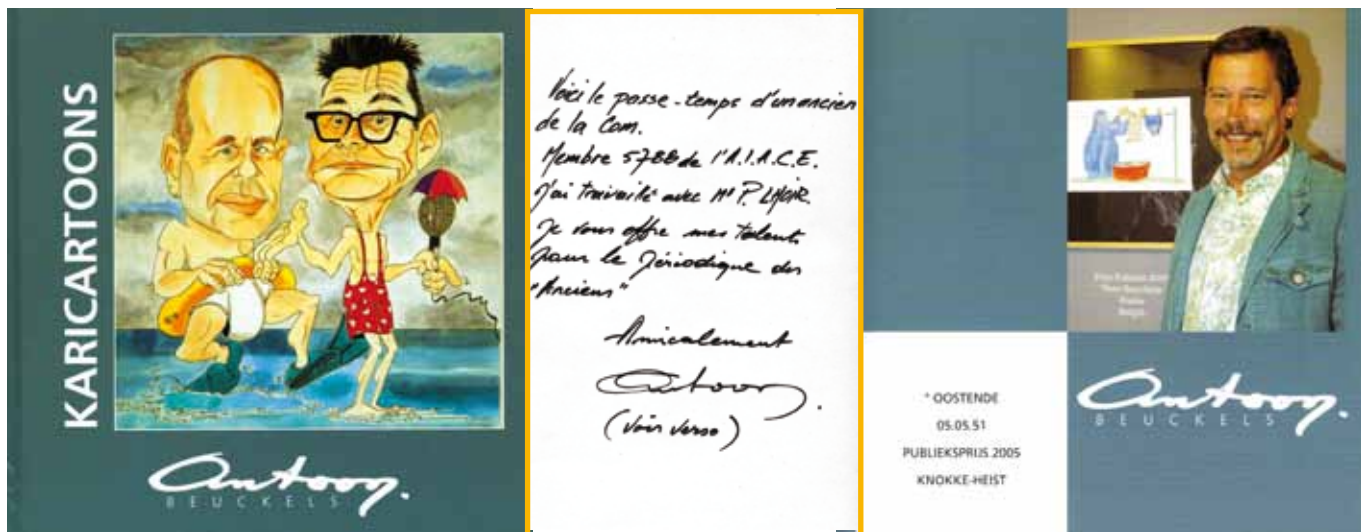 KARICARTOONS
Antoon.
BEUCKELS
Voici le passe-temps d'un ancien
de la Com.
Membre 5788 de l'A.I.A.C.E.
J'ai travaillé avec Mr P. LHOIR.
Je vous offre mes talents
pour le Périodique des
"Anciens"
Amicalement
Antoon.
(Voir verso)
° OOSTENDE
05.05.51
PUBLIEKSPRIJS 2005
KNOKKE-HEIST
Antoon.
BEUCKELS